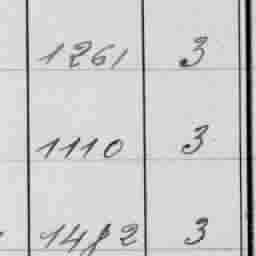 1261 3
1110 3
1482 3